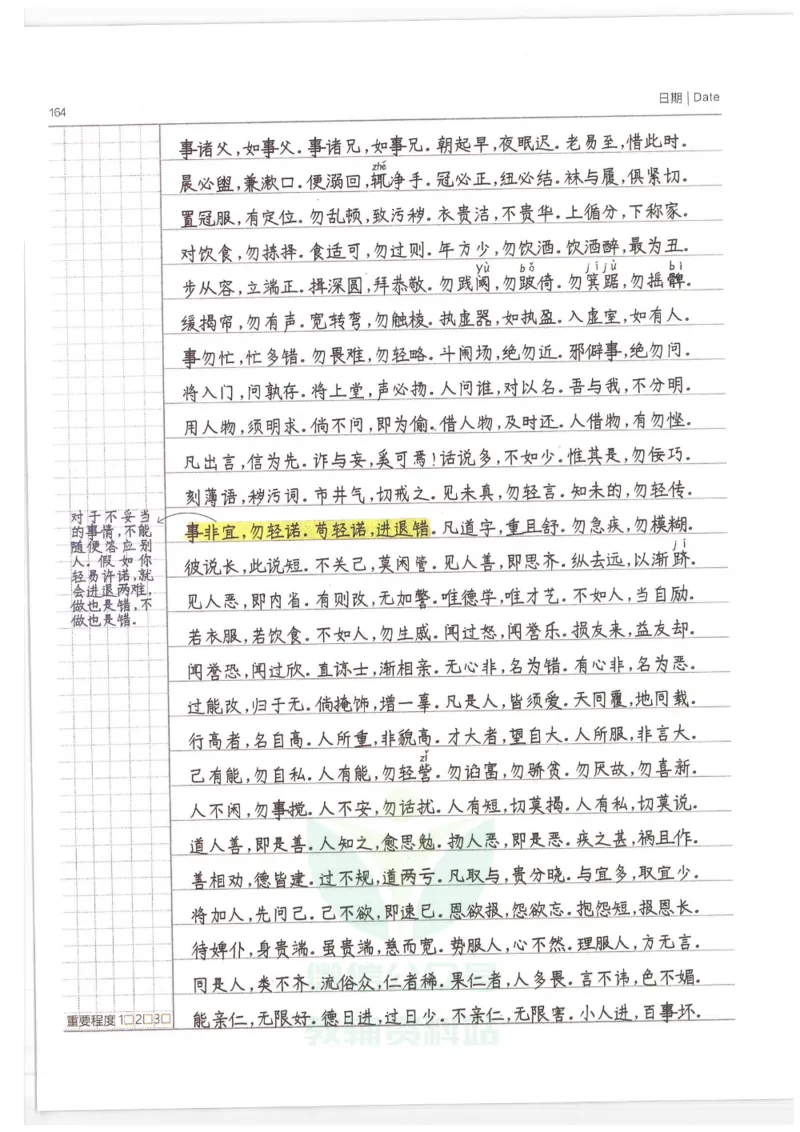 164
日期 | Date
事诸父,如事父。事诸兄,如事兄。朝起早,夜眠迟。老易至,惜此时。
zhé
晨必盥,兼漱口。便溺回,辄净手。冠必正,纽必结。袜与履,俱紧切。
置冠服,有定位。勿乱顿,致污秽。衣贵洁,不贵华。上循分,下称家。
对饮食,勿拣择。食适可,勿过则。年方少,勿饮酒。饮酒醉,最为丑。
yù bǒ jī jù bì
步从容,立端正。揖深圆,拜恭敬。勿践阈,勿跛倚。勿箕踞,勿摇髀。
缓揭帘,勿有声。宽转弯,勿触棱。执虚器,如执盈。入虚室,如有人。
事勿忙,忙多错。勿畏难,勿轻略。斗闹场,绝勿近。邪僻事,绝勿问。
将入门,问孰存。将上堂,声必扬。人问谁,对以名。吾与我,不分明。
用人物,须明求。倘不问,即为偷。借人物,及时还。人借物,有勿悭。
凡出言,信为先。诈与妄,奚可焉!话说多,不如少。惟其是,勿佞巧。
刻薄语,秽污词。市井气,切戒之。见未真,勿轻言。知未的,勿轻传。
事非宜,勿轻诺。苟轻诺,进退错。凡道字,重且舒。勿急疾,勿模糊。
jī
彼说长,此说短。不关己,莫闲管。见人善,即思齐。纵去远,以渐跻。
见人恶,即内省。有则改,无加警。唯德学,唯才艺。不如人,当自励。
若衣服,若饮食。不如人,勿生戚。闻过怒,闻誉乐。损友来,益友却。
闻誉恐,闻过欣。直谅士,渐相亲。无心非,名为错。有心非,名为恶。
过能改,归于无。倘掩饰,增一辜。凡是人,皆须爱。天同覆,地同载。
行高者,名自高。人所重,非貌高。才大者,望自大。人所服,非言大。
zǐ
己有能,勿自私。人有能,勿轻訾。勿谄富,勿骄贫。勿厌故,勿喜新。
人不闲,勿事搅。人不安,勿话扰。人有短,切莫揭。人有私,切莫说。
道人善,即是善。人知之,愈思勉。扬人恶,即是恶。疾之甚,祸且作。
善相劝,德皆建。过不规,道两亏。凡取与,贵分晓。与宜多,取宜少。
将加人,先问己。己不欲,即速已。恩欲报,怨欲忘。抱怨短,报恩长。
待婢仆,身贵端。虽贵端,慈而宽。势服人,心不然。理服人,方无言。
同是人,类不齐。流俗众,仁者稀。果仁者,人多畏。言不讳,色不媚。
能亲仁,无限好。德日进,过日少。不亲仁,无限害。小人进,百事坏。
对于不妥当
的事情,不能
随便答应别
人。假如你
轻易许诺,就
会进退两难,
做也是错,不
做也是错。
重要程度 1□2□3□
教辅资料站